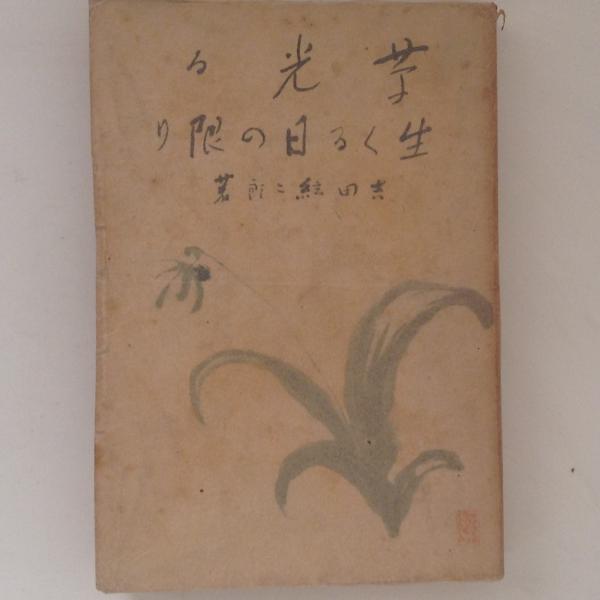 草光る
生くる日の限り
吉田絃二郎著